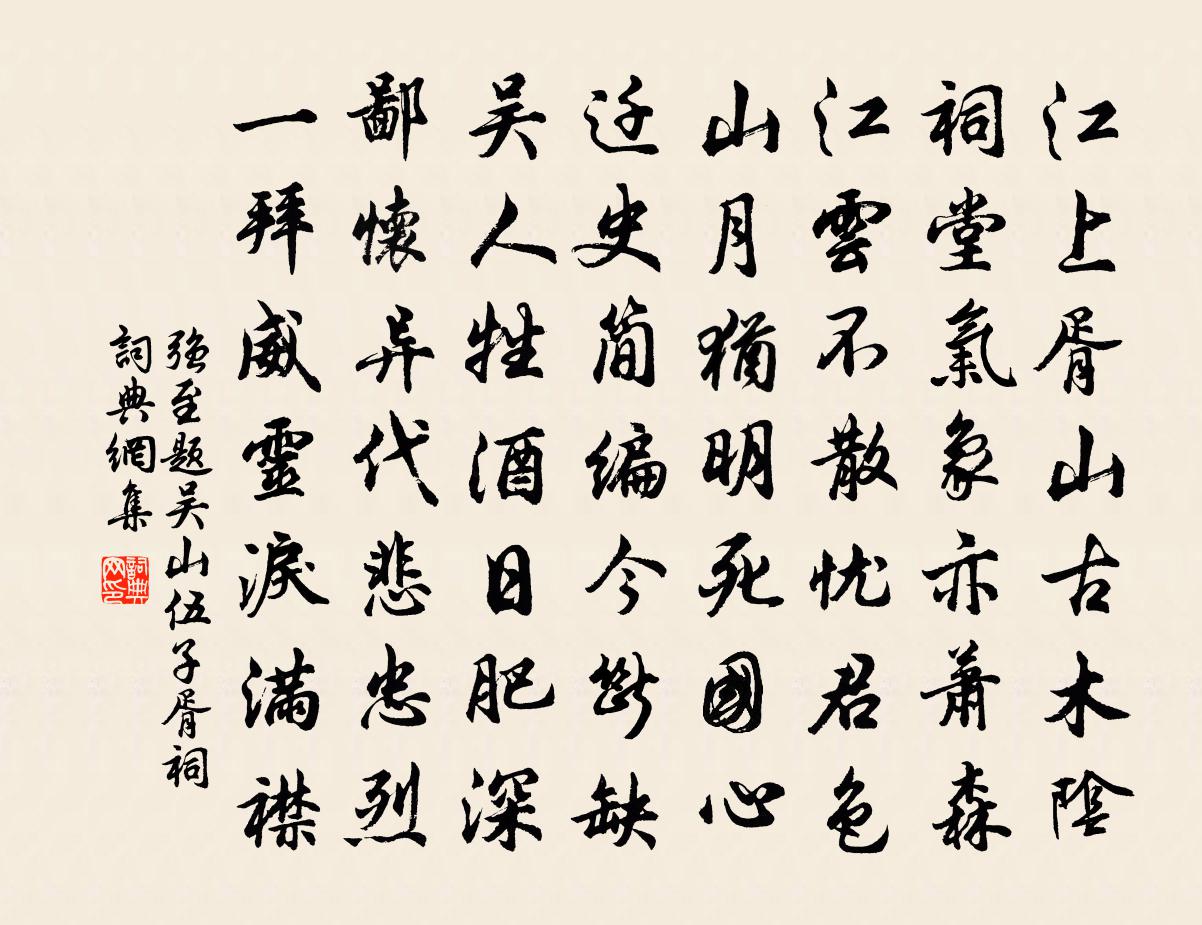 江上胥山古木陰
祠堂氣象亦蕭森
江雲不散忧君色
山月猶明死國心
迁史简编今斷缺
吴人牲酒日肥深
鄙懷异代悲忠烈
一拜威靈淚滿襟
强至题吴山伍子胥祠
詞典網集
詞典网印